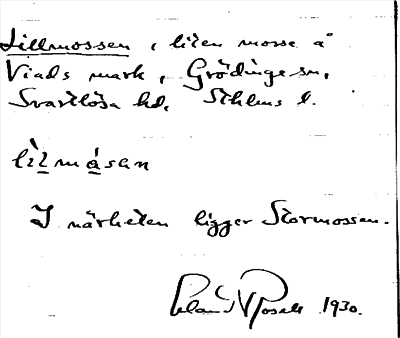 Lillmossen, liten mosse å
Viads mark, Grödinge sn,
Svartlösa hd, Sthlms l.
lìlmåsen
I närheten ligger Stormossen.
1930.